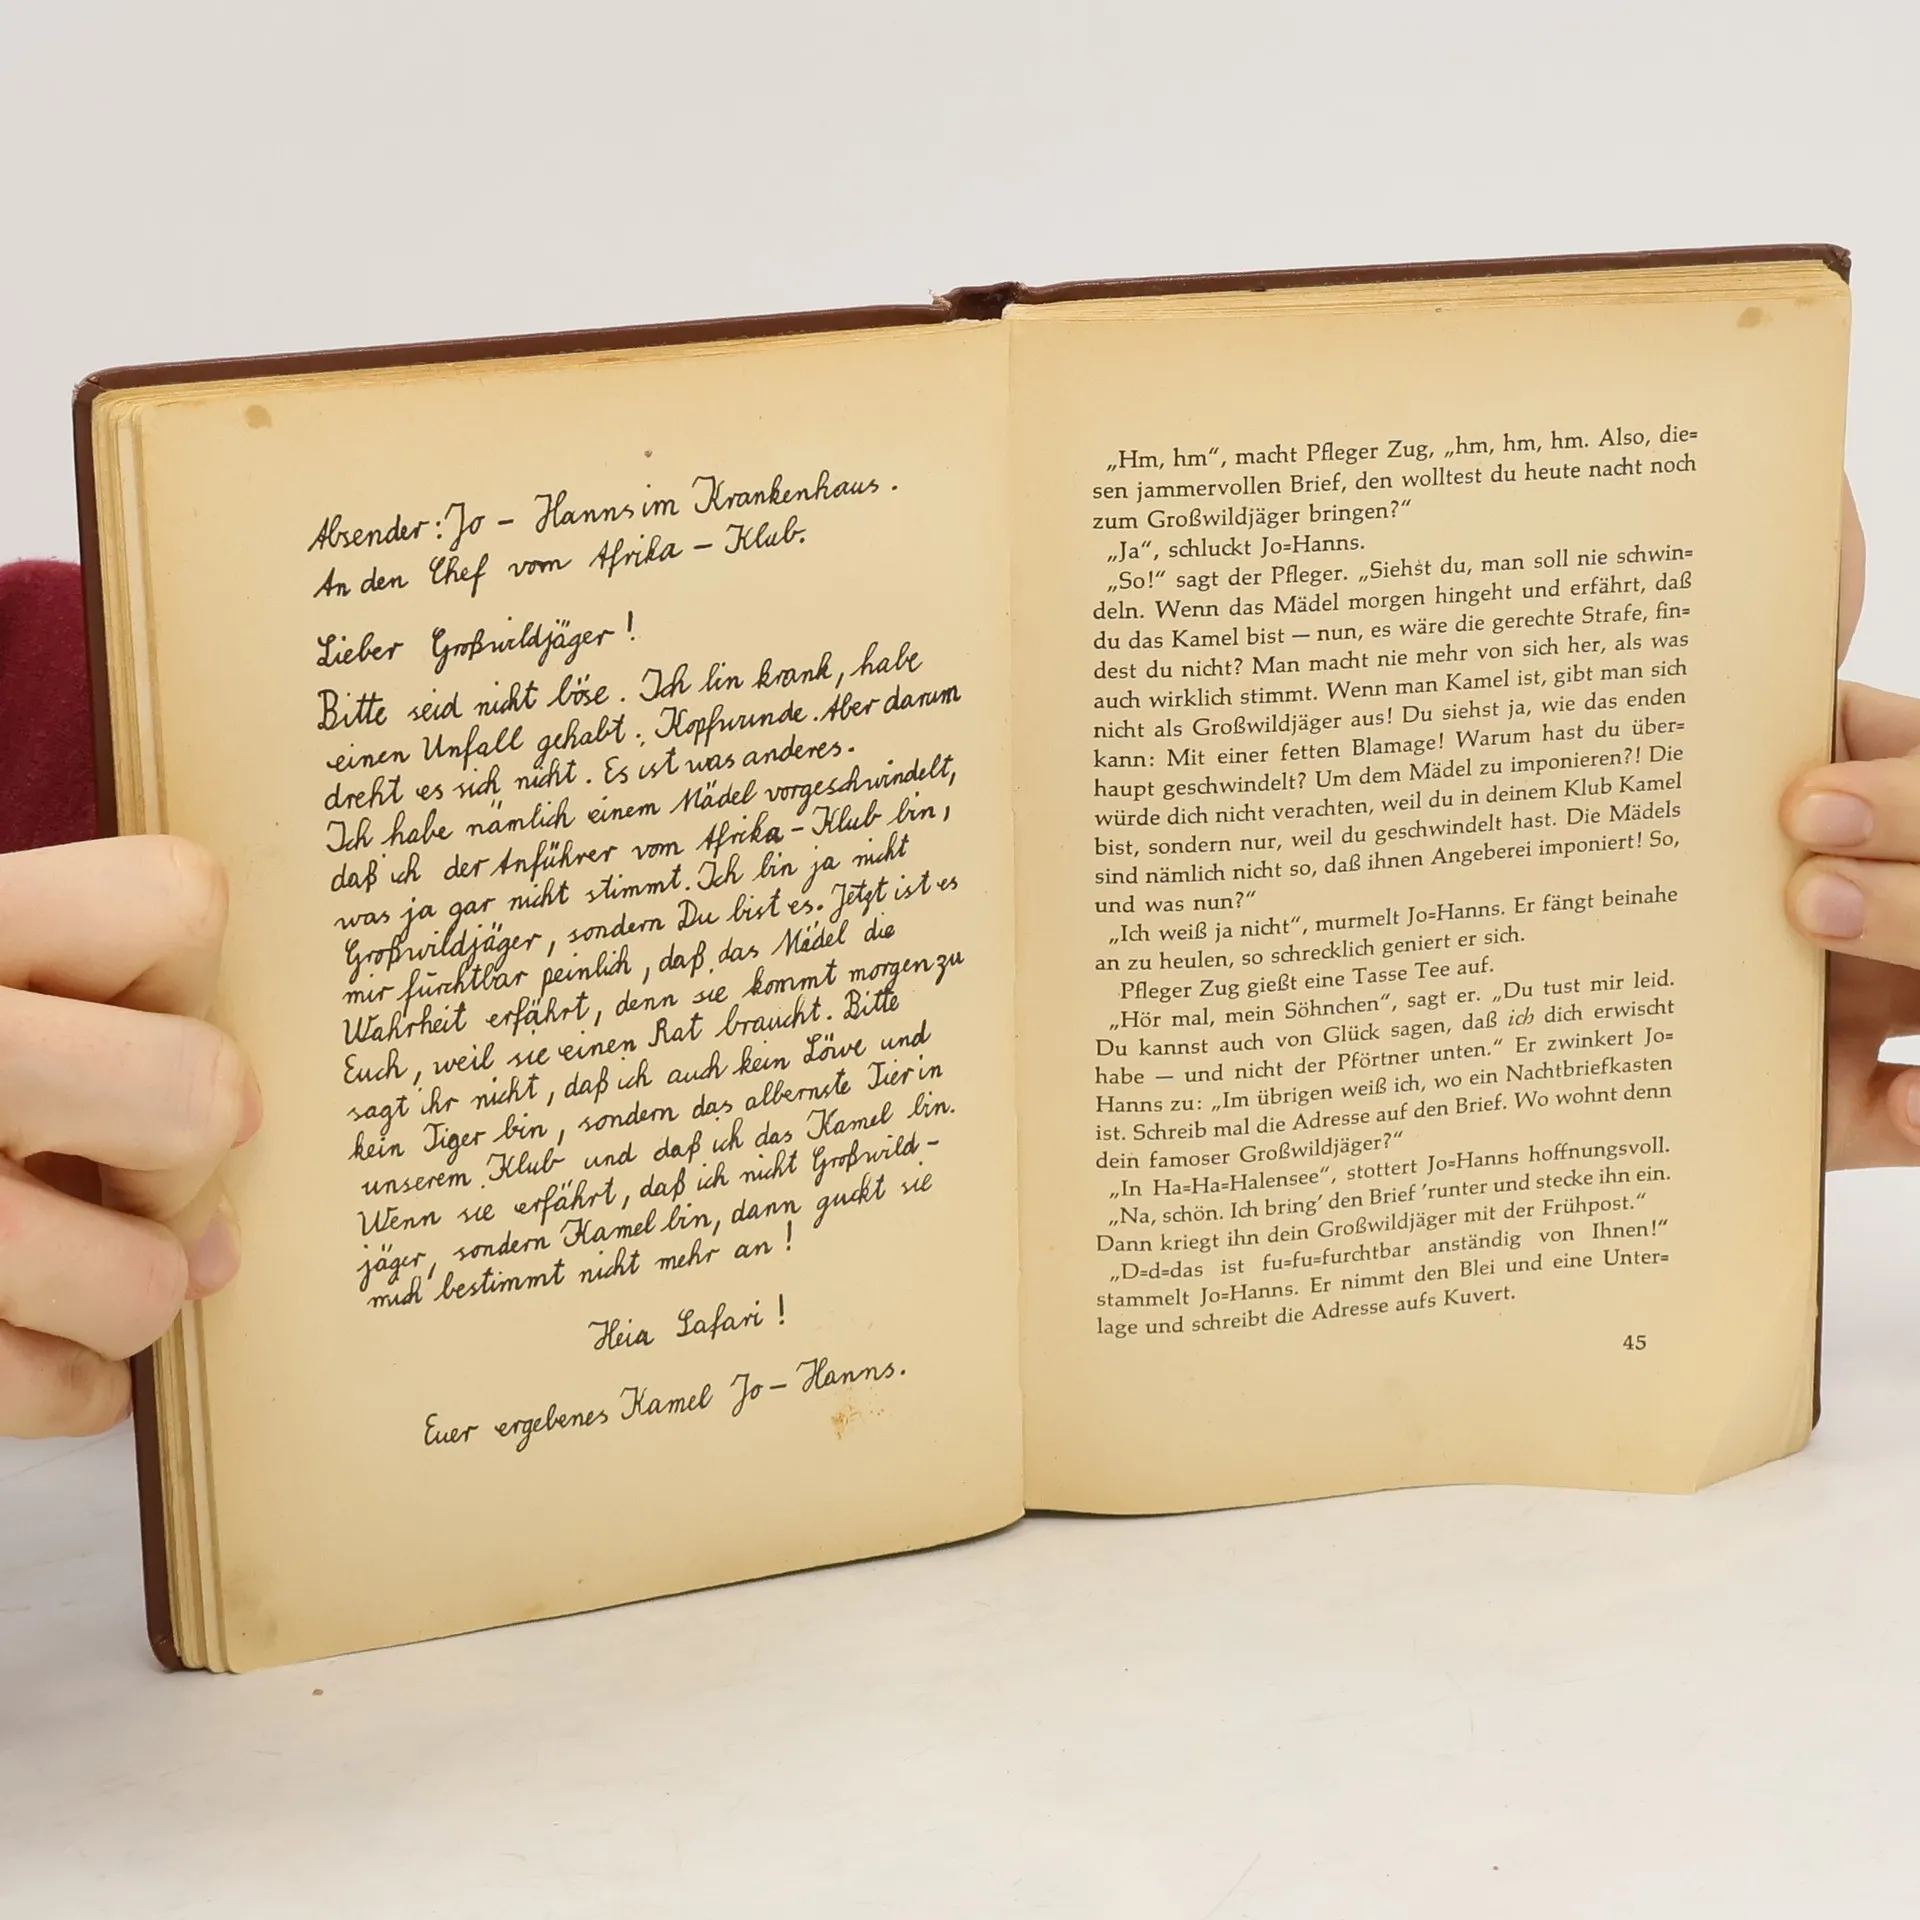 Absender: Jo – Hanns im Krankenhaus.
An den Chef vom Afrika – Klub.
Lieber Großwildjäger!
Bitte seid nicht böse. Ich bin krank, habe
einen Unfall gehabt: Kopfwunde. Aber darum
dreht es sich nicht. Es ist was anderes.
Ich habe nämlich einem Mädel vorgeschwindelt,
daß ich der Anführer vom Afrika – Klub bin,
was ja gar nicht stimmt. Ich bin ja nicht
Großwildjäger, sondern Du bist es. Jetzt ist es
mir furchtbar peinlich, daß das Mädel die
Wahrheit erfährt, denn sie kommt morgen zu
Euch, weil sie einen Rat braucht. Bitte
sagt ihr nicht, daß ich auch kein Löwe und
kein Tiger bin, sondern das albernste Tier in
unserem Klub und daß ich das Kamel bin.
Wenn sie erfährt, daß ich nicht Großwild –
jäger, sondern Kamel bin, dann guckt sie
mich bestimmt nicht mehr an!
Heia Safari!
Euer ergebenes Kamel Jo – Hanns.
„Hm, hm“, macht Pfleger Zug, „hm, hm, hm. Also, die=
sen jammervollen Brief, den wolltest du heute nacht noch
zum Großwildjäger bringen?“
„Ja“, schluckt Jo=Hanns.
„So!“ sagt der Pfleger. „Siehst du, man soll nie schwin=
deln. Wenn das Mädel morgen hingeht und erfährt, daß
du das Kamel bist — nun, es wäre die gerechte Strafe, fin=
dest du nicht? Man macht nie mehr von sich her, als was
auch wirklich stimmt. Wenn man Kamel ist, gibt man sich
nicht als Großwildjäger aus! Du siehst ja, wie das enden
kann: Mit einer fetten Blamage! Warum hast du über=
haupt geschwindelt? Um dem Mädel zu imponieren?! Die
würde dich nicht verachten, weil du in deinem Klub Kamel
bist, sondern nur, weil du geschwindelt hast. Die Mädels
sind nämlich nicht so, daß ihnen Angeberei imponiert! So,
und was nun?“
„Ich weiß ja nicht“, murmelt Jo=Hanns. Er fängt beinahe
an zu heulen, so schrecklich geniert er sich.
Pfleger Zug gießt eine Tasse Tee auf.
„Hör mal, mein Söhnchen“, sagt er. „Du tust mir leid.
Du kannst auch von Glück sagen, daß ich dich erwischt
habe — und nicht der Pförtner unten.“ Er zwinkert Jo=
Hanns zu: „Im übrigen weiß ich, wo ein Nachtbriefkasten
ist. Schreib mal die Adresse auf den Brief. Wo wohnt denn
dein famoser Großwildjäger?“
„In Ha=Ha=Halensee“, stottert Jo=Hanns hoffnungsvoll.
„Na, schön. Ich bring’ den Brief ’runter und stecke ihn ein.
Dann kriegt ihn dein Großwildjäger mit der Frühpost.“
„D=d=das ist fu=fu=furchtbar anständig von Ihnen!“
stammelt Jo=Hanns. Er nimmt den Blei und eine Unter=
lage und schreibt die Adresse aufs Kuvert.
45